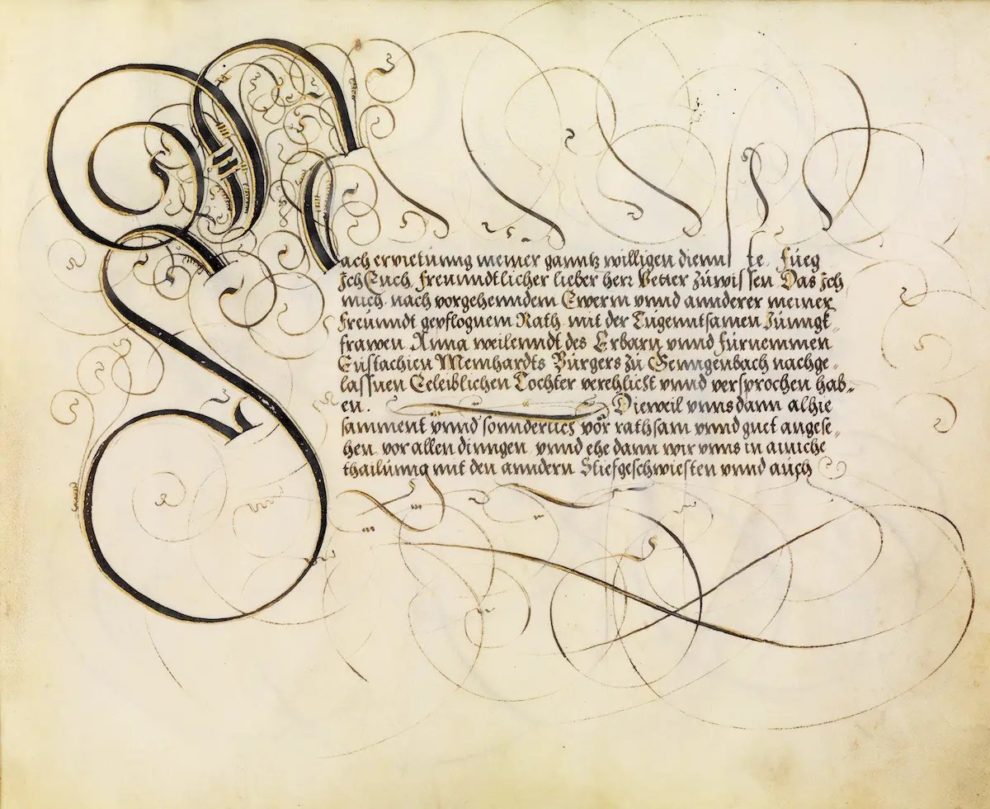 Nach ervietŭnng meiner ganntz willigen diennste, Füeg
Ich Euch freunndtlicher lieber herr Vetter zŭwissen Das Ich
mich nach vorgehenndem Ewerm vnnd annderer meiner
Freŭnndt gepflognem Rath mit der Tŭgenntsamen Jŭnngk-
frawen Anna weilenndt des Erbarn vnnd fŭrnemmen
Eŭstachien Meinhardts Bŭrgers zŭ Genngenbach nachge-
lassnen Eeleiblichen Tochter verehlicht vnnd versprochen hab-
en. Dieweil vnns dann alhie
samment vnnd sonnderlich vor rathsam vnnd guet angese-
hen vor allen dinngen vnnd ehe dann wir vnns in ainiche
thailŭnng mit den anndern Stiefgeschwiesten vnnd auch